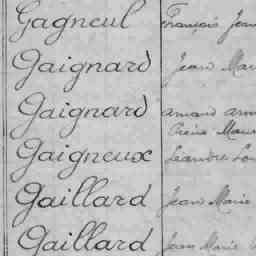 Gagneul François Jean
Gaignard Jean Mar
Gaignard Amand Arm
Pierre Maur
Gaigneux Léandre Lou
Gaillard Jean Marie
Gaillard Jean Marie